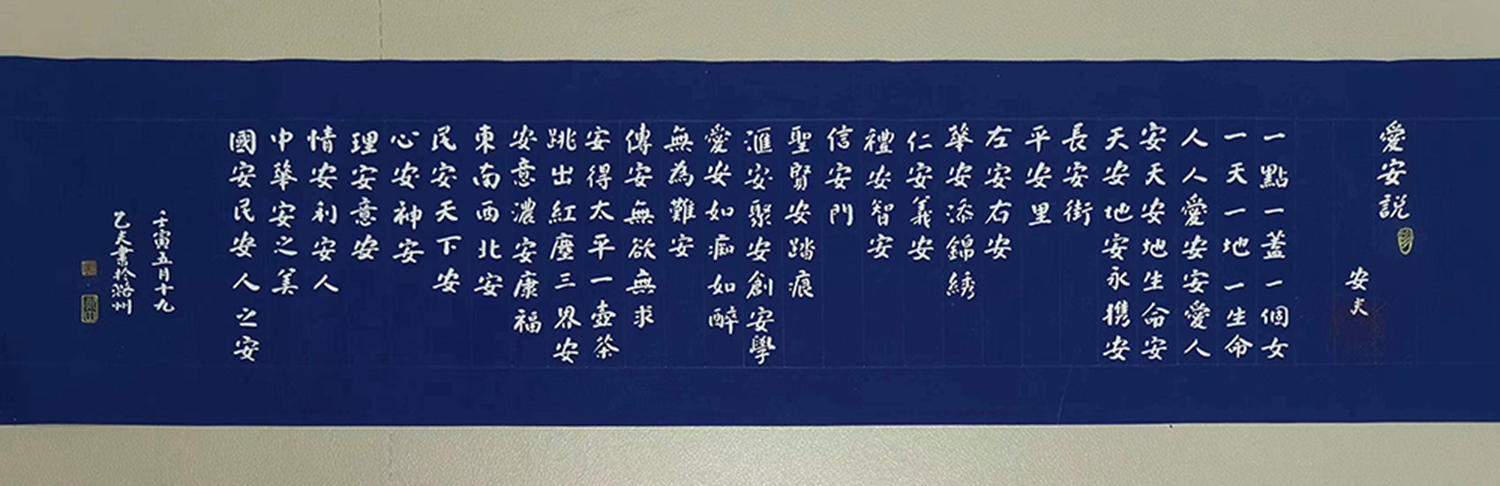 愛安説
安夫
一點一蓋一個女
一天一地一生命
人人愛安安愛人
安天安地生命安
天安地安永携安
長安街
平安里
左安右安
華安添錦綉
仁安義安
禮安智安
信安門
聖賢安踏痕
滙安聚安創安學
愛安如痴如醉
無為難安
傳安無欲無求
安得太平一壺茶
跳出紅塵三界安
安意濃安康福
東南西北安
民安天下安
心安神安
理安意安
情安利安人
中華安之美
國安民安人之安
壬寅五月十九
乙夫書於潞州